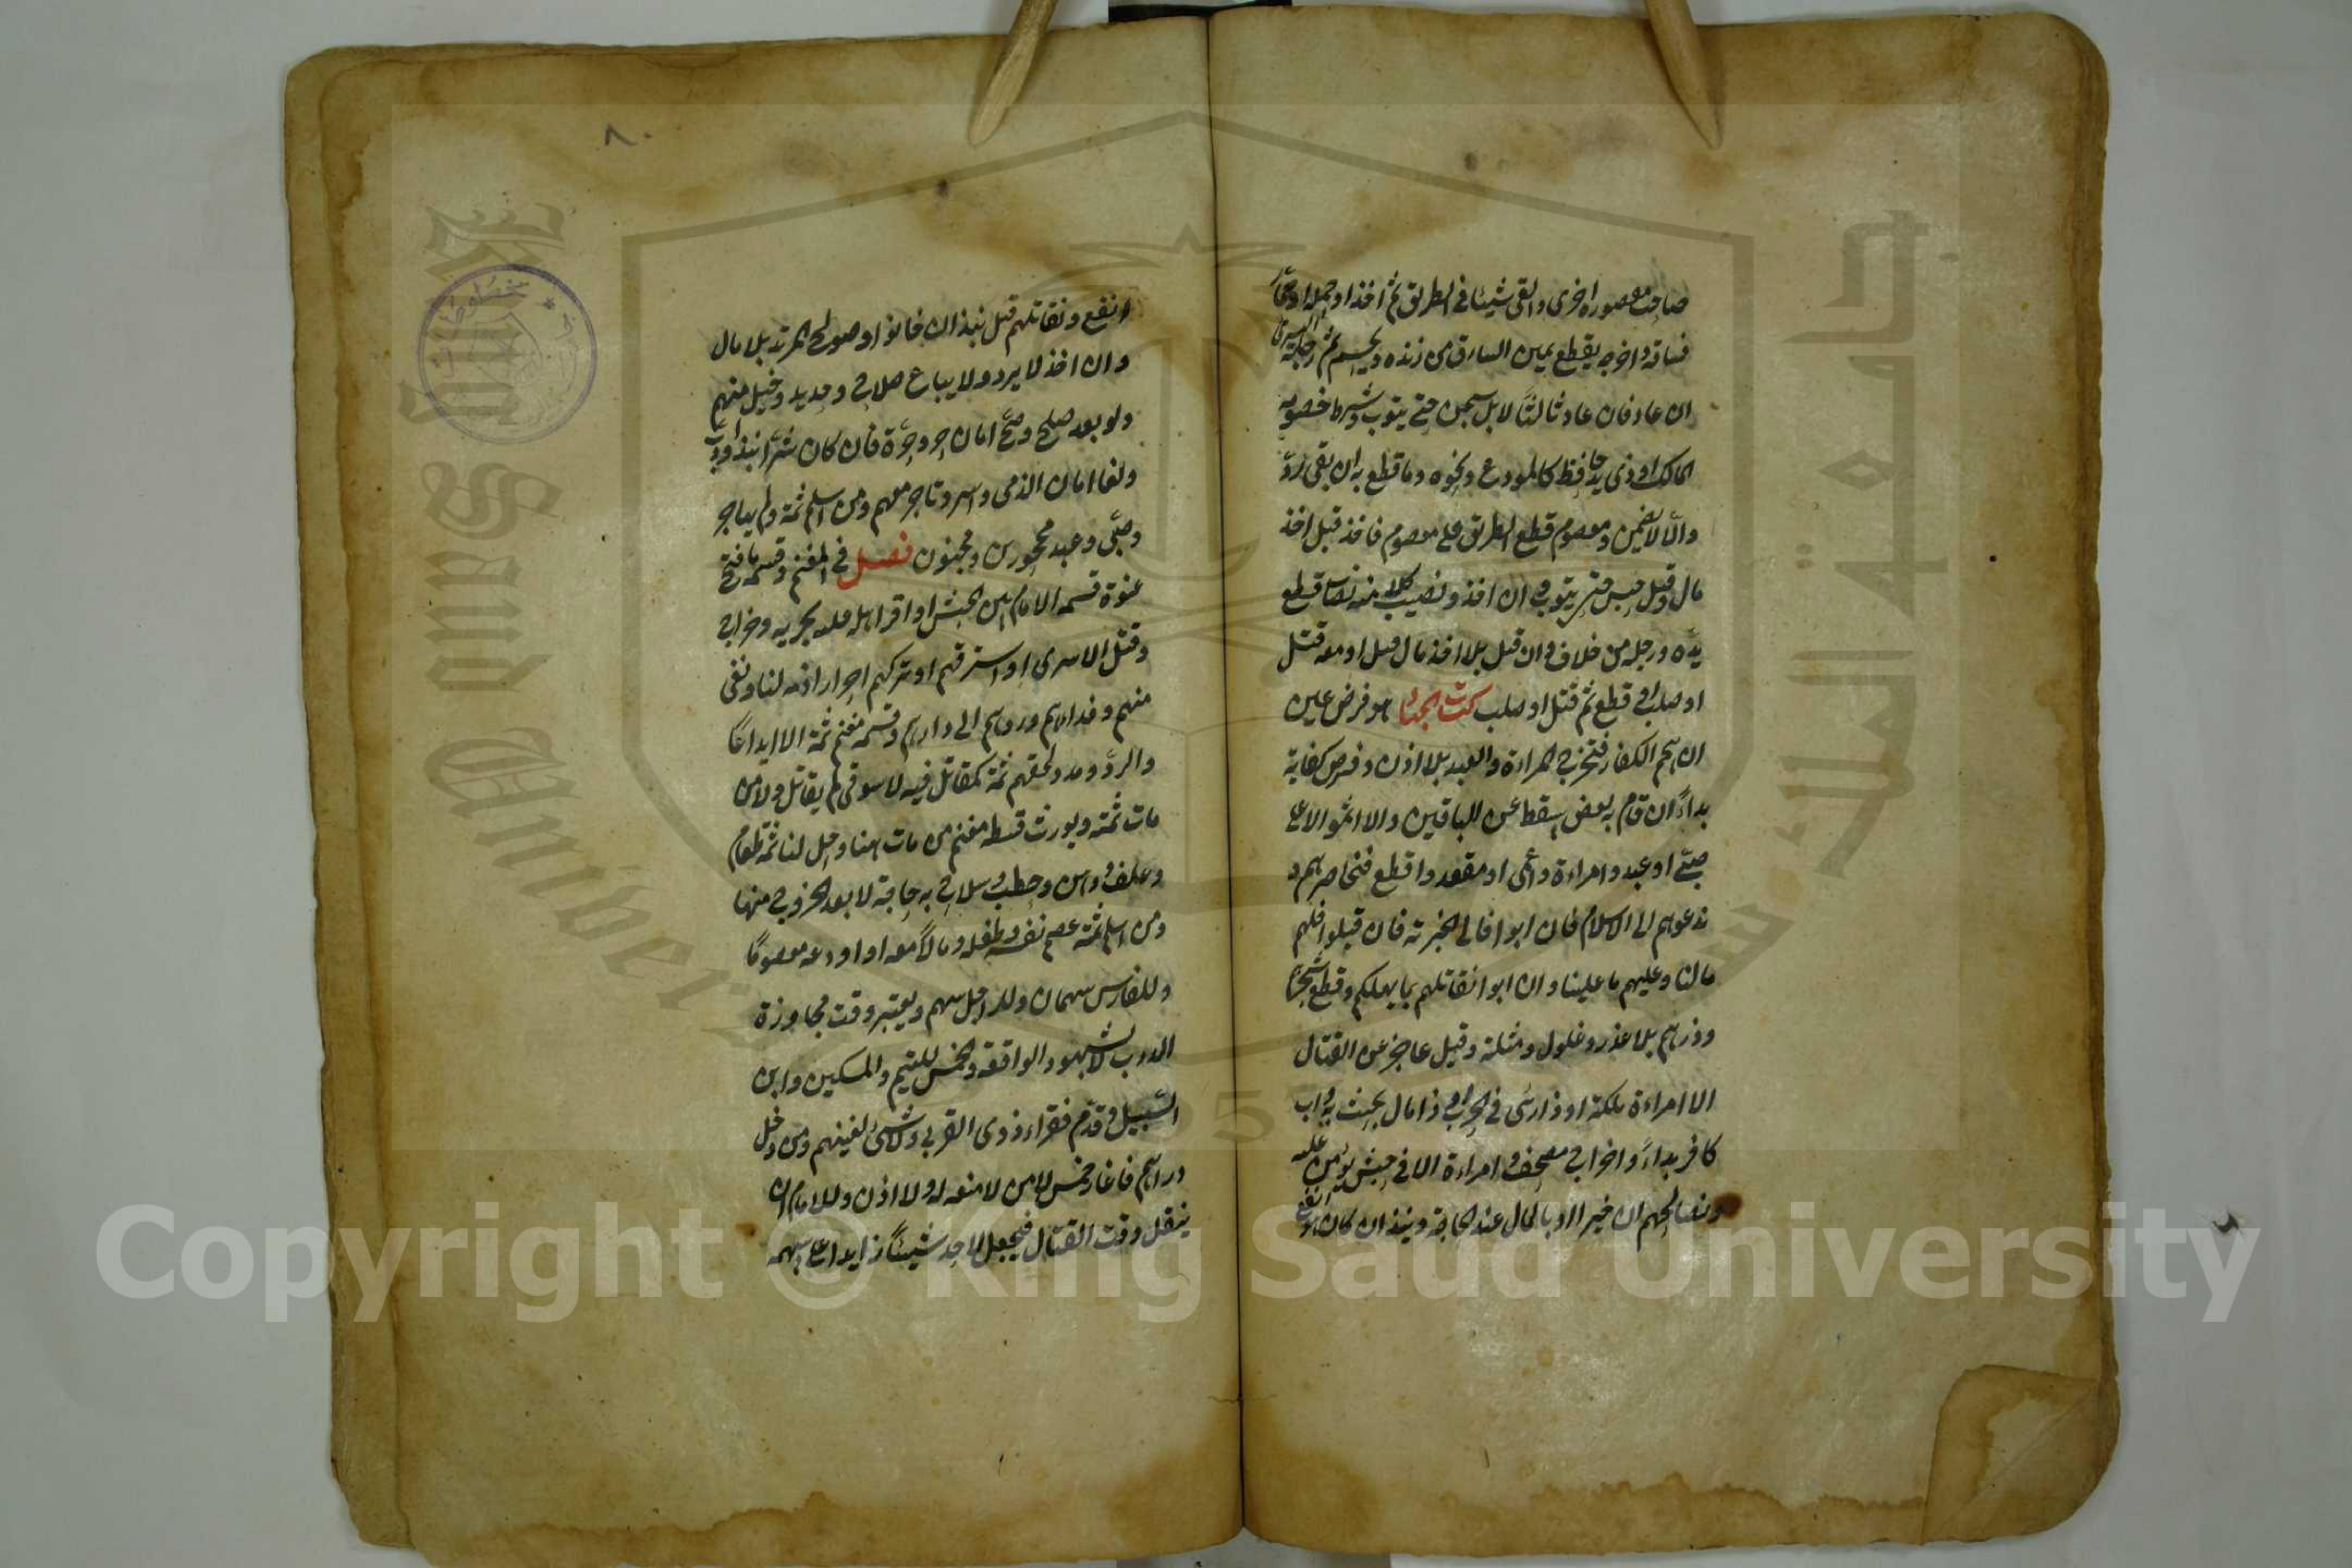 صاحب مقصورة اخرى والقى شيئا في الطريق ثم اخذ او حمله او على
فساقه واخرجه يقطع يمين السارق من زنده ويحسم ثم رجله اليسرى
ان عاد فان عاد ثالثا لا بل سجن حتى يتوب وشرط خصومة
المالك او ذي يد حافظ كالمودع ونحوه وما قطع به ان بقي رد
والا لا يضمن ومعصوم قطع الطريق على معصوم فاخذ قبل اخذ
مال وقتل حبس حتى يتوب وان اخذ ونصيب كل منه نصاب قطع
يده ورجله من خلاف وان قتل بلا اخذ مال قتل او معه قتل
او صلب او قطع ثم قتل او صلب كتاب الجهاد هو فرض عين
ان هجم الكفار فتخرج المراءة والعبد بلا اذن وفرض كفاية
بداءً ان قام به بعض سقط عن الباقين والا اثموا الا على
صبي او عبد وامراءة واعمى او مقعد واقطع فنحاصرهم و
ندعوهم الى الاسلام فان ابوا فالى الجزية فان قبلوا فلهم
مالنا وعليهم ما علينا وان ابوا نقاتلهم بما يهلكهم وقطع شجرهم
وزرعهم بلا غدر وغلول ومثلة وقتل عاجز عن القتال
الا امراءة ملكة او ذا رئى في الحرب او ذا مال يحث به واب
كافر بداءً واخراج مصحف وامراءة الا في جيش يؤمن عليه
ونصالحهم ان خيرا او بالمال عند الحاجة وينبذ ان كان هو انفع
انفع ونقاتلهم قبل نبذ ان خانوا وصولح المرتد بلا مال
وان اخذ لا يرد ولا يباع سلاح وحديد وخيل منهم
ولو بعد صلح وصح امان حر وحرة فان كان شرا نبذ وادب
ولغا امان الذمي واسير وتاجر معهم ومن اسلم ثمة ولم يهاجر
وصبي وعبد محجورين ومجنون فصل في المغنم وقسمه ما فتح
عنوة قسمه الامام بين الجيش او اقر اهله عليه بجزية وخراج
وقتل الاسرى او استرقهم او تركهم احرارا ذمة لنا ونفى
منهم وفداءهم وردهم الى دارهم وقسمة مغنم ثمة الا ايداعا
والردء ومدد لحقهم ثمة كمقاتل فيه لا سوقي لم يقاتل ولا من
مات ثمة ويورث قسط مغنم من مات هنا وحل لنا ثمة طعام
وعلف ودهن وحطب وسلاح به حاجة لا بعد الخروج منها
ومن اسلم ثمة عصم نفسه وطفله ومالا معه او اودعه معصوما
وللفارس سهمان وللراجل سهم ويعتبر وقت مجاوزة
الدرب لا شهود الواقعة والخمس لليتيم والمسكين وابن
السبيل وقدم فقراء ذوي القربى ولا شئ لغنيهم ومن دخل
دراهم فاغار خمس الا من لا منعة له ولا اذن وللامام ان
ينفل وقت القتال فيجعل لاحد شيئا زايدا على سهمه
٨٠
Copyright © King Saud University